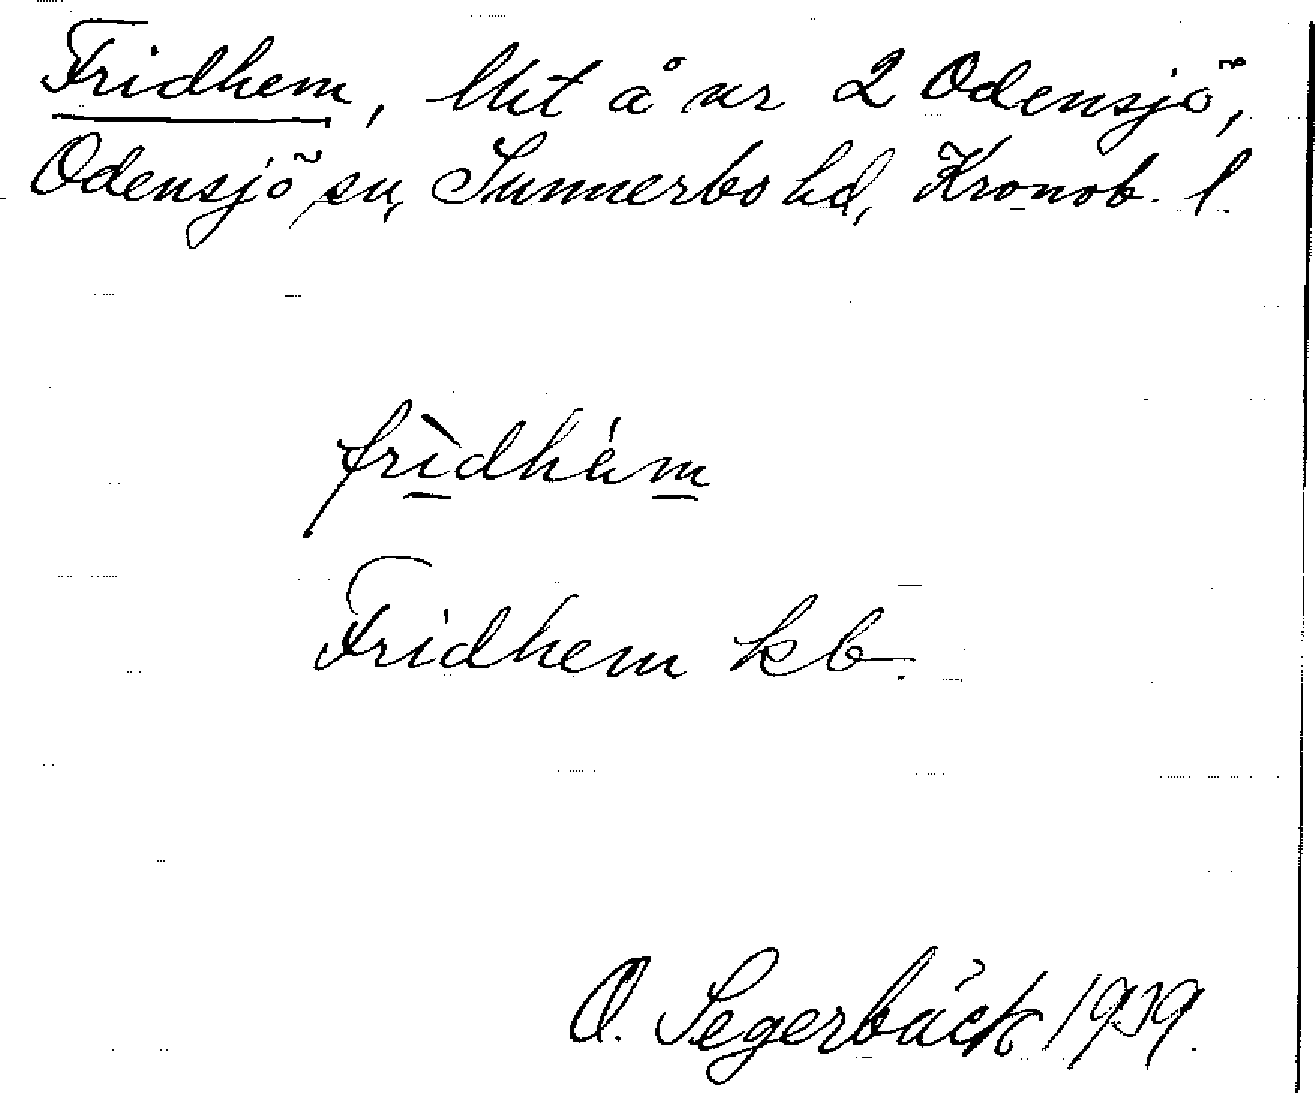 Fridhem, lht å nr 2 Odensjö,
Odensjö sn, Sunnerbo hd, Kronob. l
frìdhä́m
Fridhem kb.
O. Segerbäck 1939.